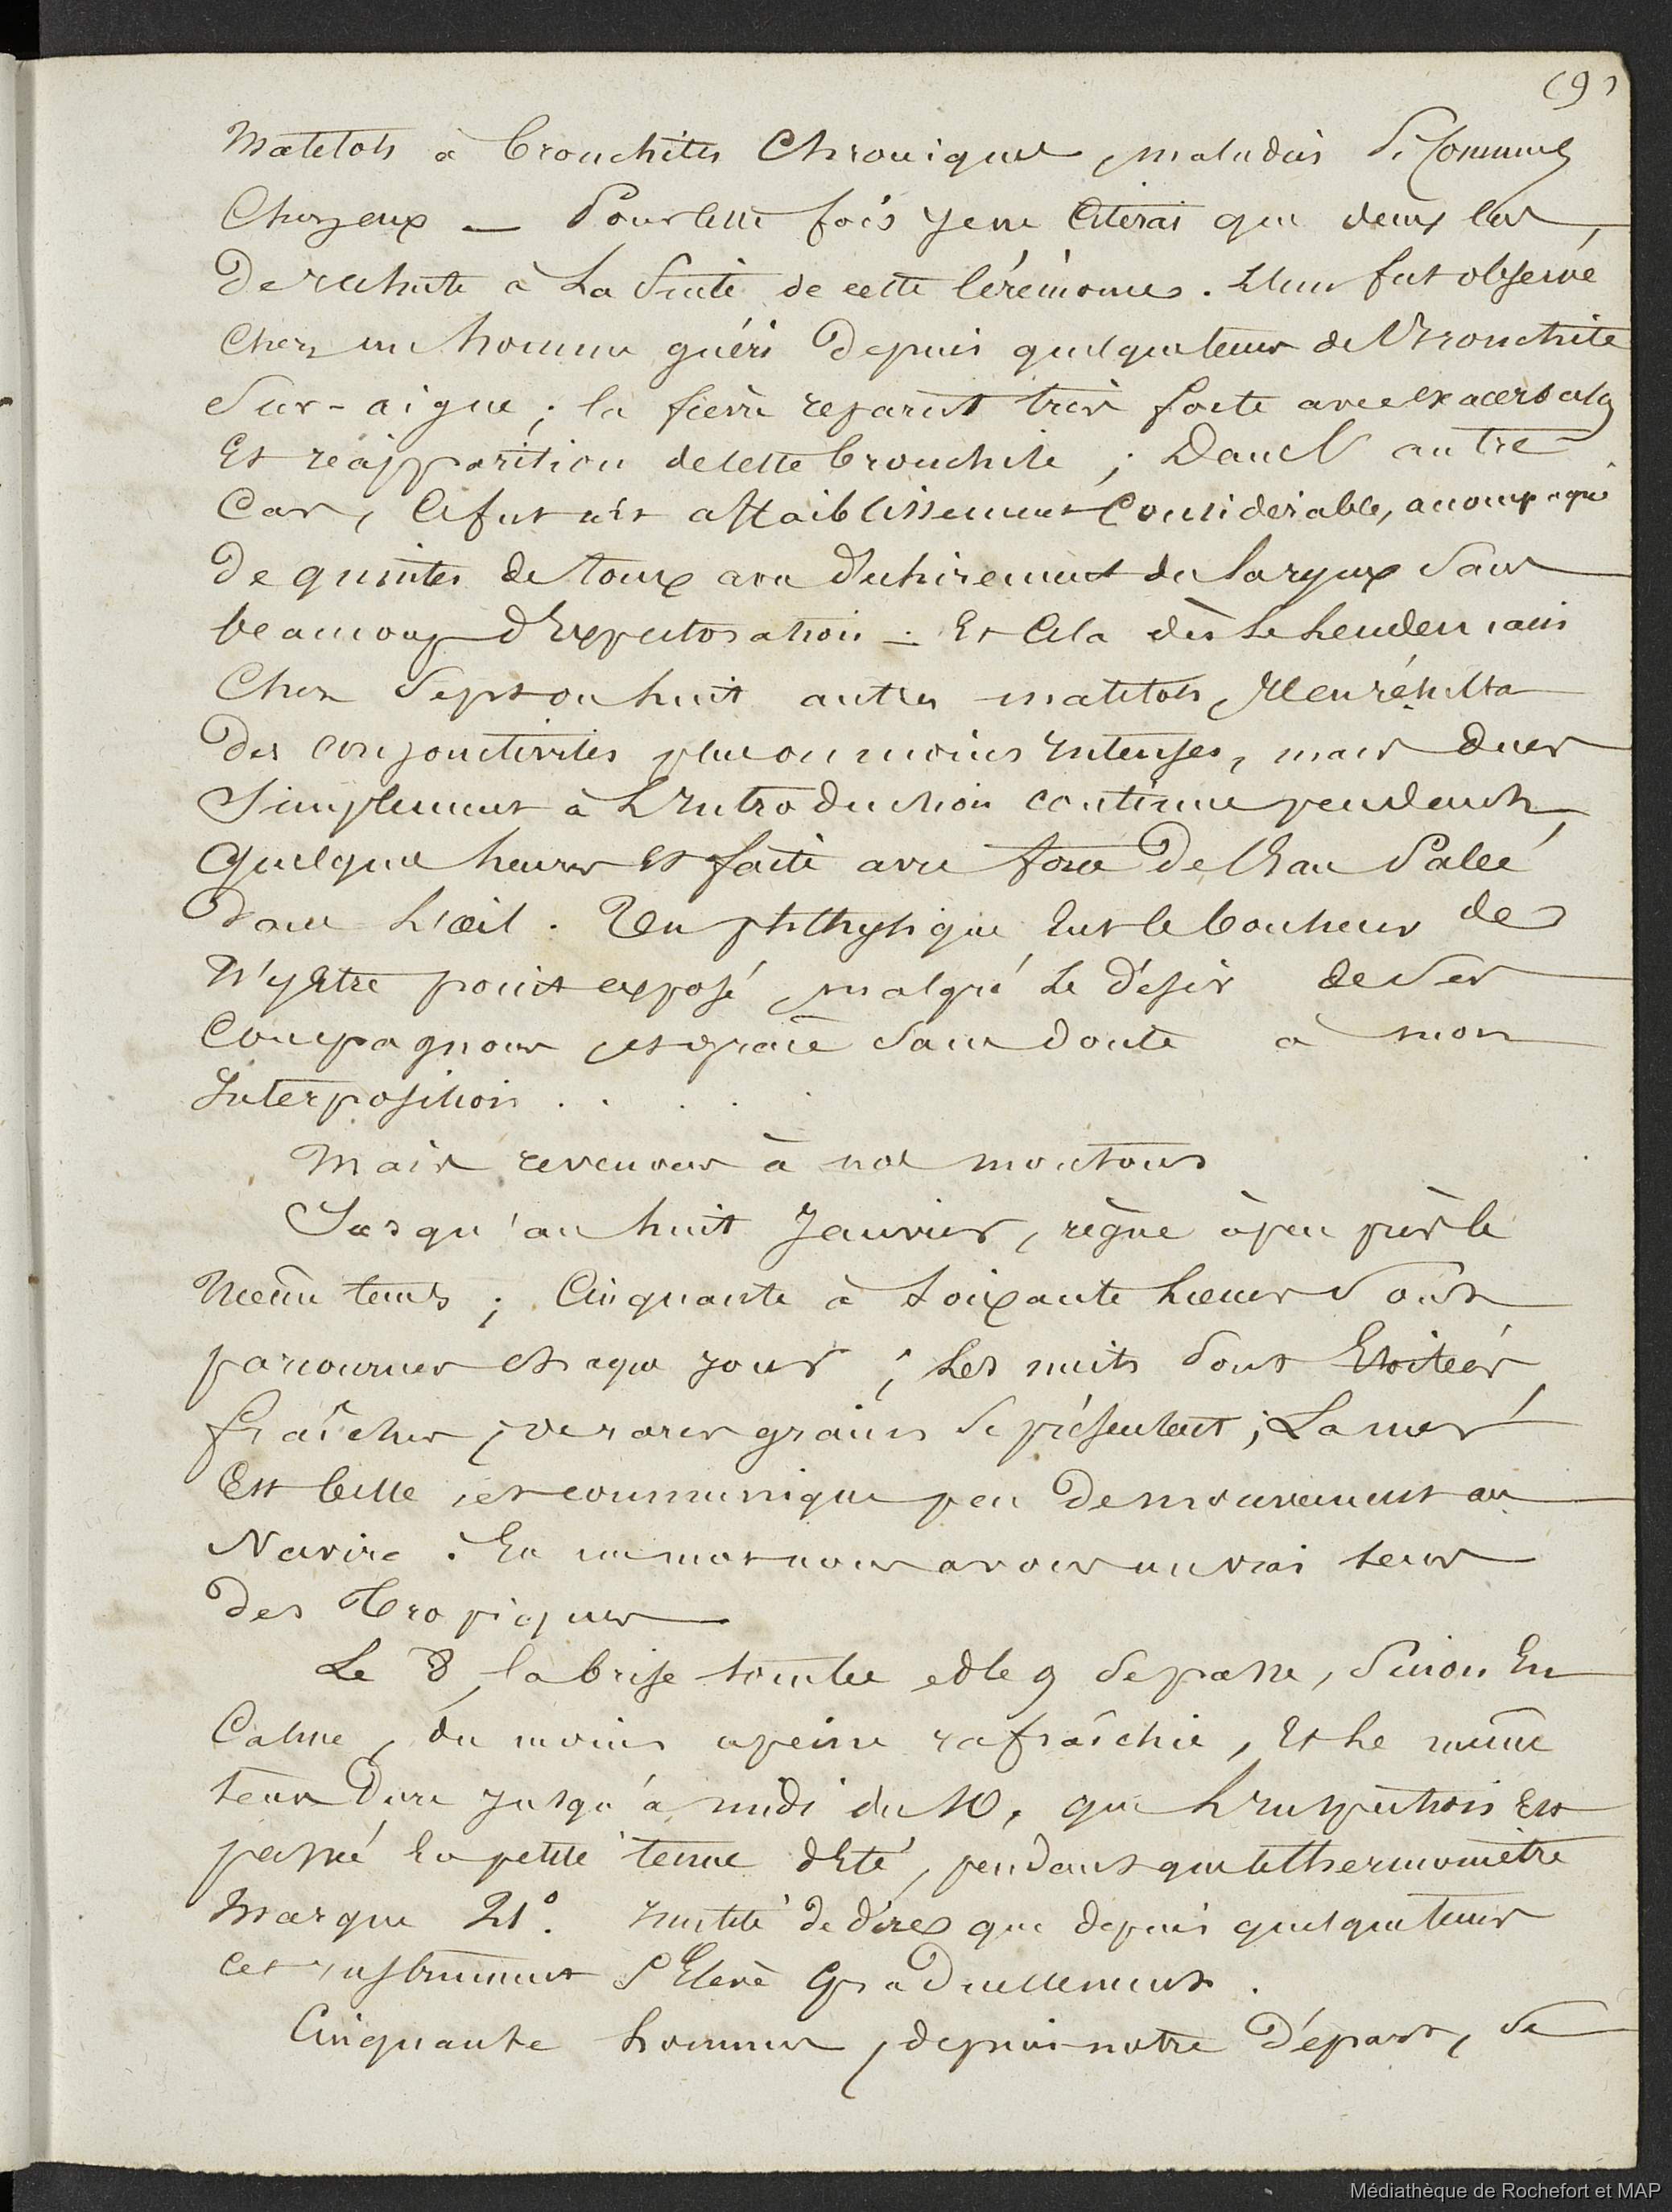 (9)
Matelots à bronchites Chroniques, maladies si Communes
Chez eux — Pour cette fois je ne Citerai que deux cas,
De rechute à la Suite de cette Cérémonies. L'un fut observé
Chez un homme guéri Depuis quelque tems de Bronchite
Sur-aigue ; la fièvre reparut très forte avec exacerbatn
Et reapparition de cette bronchite ; Dans l'autre
Cas, Ce fut un affaiblissement Considérable, accompagné
De quintes de toux avec Déchirement du Larynx Sans
beaucoup d'Expectoration — Et Cela dès le lendemain
Chez Sept ou huit autres matelots, Il en résulta
Des conjonctivites plus ou moins intenses, mais dues
Simplement à L'Introduction continue pendant
Quelques heures et faite avec force De l'Eau Salée
Dans L'oeil. Un phthysique Eut le bonheur de
N'y Etre point exposé, malgré le Désir de Ses
Compagnons, et grace Sans doute à mon
Interposition . . . . .
Mais revenons à nos moutons
Jusqu'au huit Janvier, règne à peu près le
Même tems ; Cinquante à Soixante Lieues Sont
parcourues chaque jour ; Les nuits Sont Etoileés,
fraîches, de rares grains Se présentent ; La mer
Est belle, et communique peu De mouvement au
Navire. En un mot nous avons un vrai tems
Des Tropiques
Le 8, la brise tombe et le 9 Se passe, Sinon En
Calme, du moins à peine rafraîchie, Et Le même
tems Dure Jusqu'à midi du 10, que L'Inspection Est
passé En petite tenue d'Eté, pendant que le thermomètre
Marque 21°. Inutile De dire que depuis quelque tems
Cet instrument S'Eleve Graduellement.
Cinquante hommes, depuis notre Départ, Se
Médiathèque de Rochefort et MAP